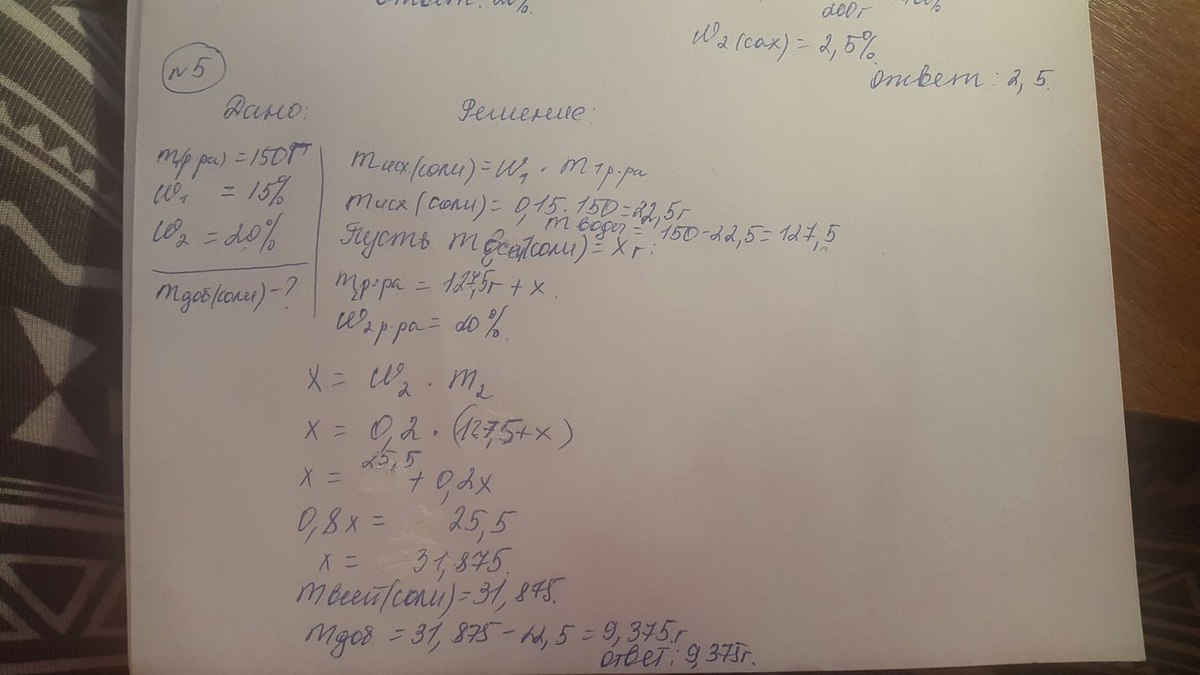 Ответ: 20%.
200г
W2(сах) = 2,5%
Ответ: 2,5.
№5
Дано:
m1(р-ра) = 150г
W1 = 15%
W2 = 20%
mдоб(соли) - ?
Решение:
mисх(соли) = W1 · m1р-ра
mисх(соли) = 0,15 · 150 = 22,5г
mводы = 150 - 22,5 = 127,5
Пусть m всей(соли) = x г:
m2р-ра = 127,5г + x
W2р-ра = 20%.
x = W2 · m2
x = 0,2 · (127,5 + x)
x = 25,5 + 0,2x
0,8x = 25,5
x = 31,875.
mвсей(соли) = 31,875.
mдоб = 31,875 - 22,5 = 9,375г
ответ: 9,375г.